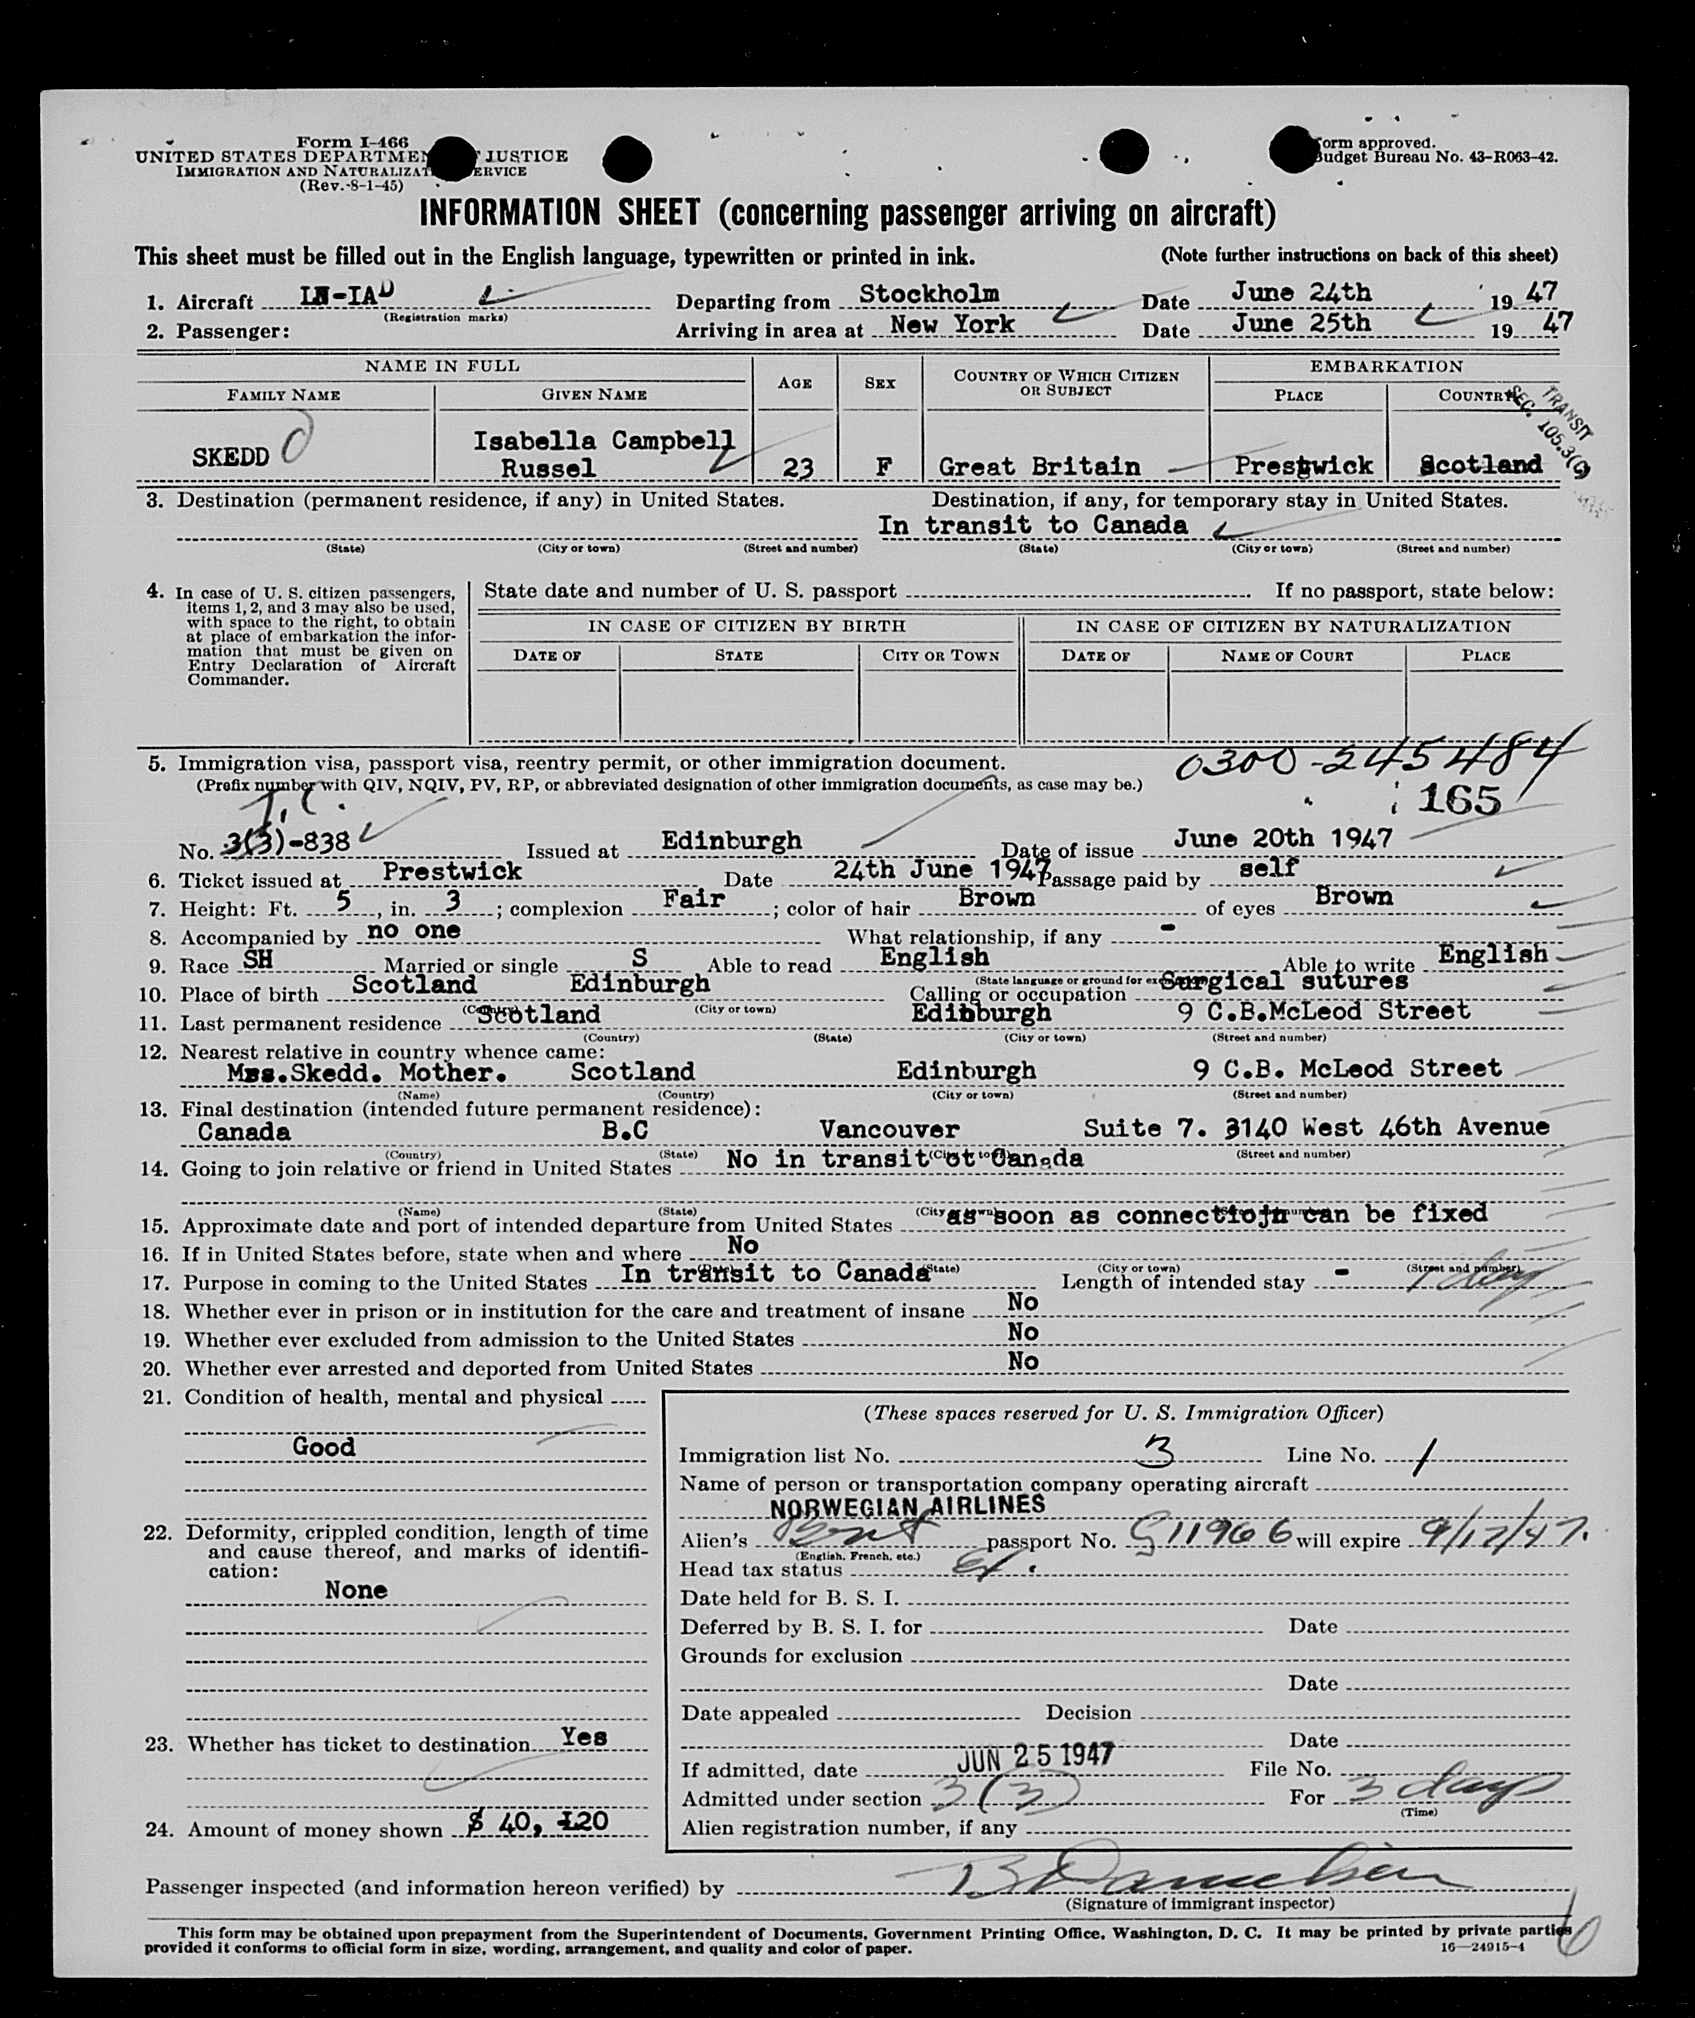 Form I-466
UNITED STATES DEPARTMEN JUSTICE
IMMIGRATION AND NATURALIZAT ERVICE
(Rev. 8-1-45)
orm approved.
Budget Bureau No. 43-R063-42.
INFORMATION SHEET (concerning passenger arriving on aircraft)
This sheet must be filled out in the English language, typewritten or printed in ink. (Note further instructions on back of this sheet)
1. Aircraft LN-IAD Departing from Stockholm Date June 24th 19 47
(Registration marks)
2. Passenger: Arriving in area at New York Date June 25th 19 47
NAME IN FULL AGE SEX COUNTRY OF WHICH CITIZEN OR SUBJECT EMBARKATION
FAMILY NAME GIVEN NAME PLACE COUNTRY
TRANSIT
SEC. 105.3(C)
SKEDD Isabella Campbell
Russel 23 F Great Britain Prestwick Scotland
3. Destination (permanent residence, if any) in United States. Destination, if any, for temporary stay in United States.
In transit to Canada
(State) (City or town) (Street and number) (State) (City or town) (Street and number)
4. In case of U. S. citizen passengers, items 1, 2, and 3 may also be used, with space to the right, to obtain at place of embarkation the information that must be given on Entry Declaration of Aircraft Commander.
State date and number of U. S. passport If no passport, state below:
IN CASE OF CITIZEN BY BIRTH IN CASE OF CITIZEN BY NATURALIZATION
DATE OF STATE CITY OR TOWN DATE OF NAME OF COURT PLACE
0300-245484
5. Immigration visa, passport visa, reentry permit, or other immigration document.
(Prefix number with QIV, NQIV, PV, RP, or abbreviated designation of other immigration documents, as case may be.)
165
T.C.
No. 3(3)-838 Issued at Edinburgh Date of issue June 20th 1947
6. Ticket issued at Prestwick Date 24th June 1947 Passage paid by self
7. Height: Ft. 5, in. 3; complexion Fair; color of hair Brown of eyes Brown
8. Accompanied by no one What relationship, if any -
9. Race SH Married or single S Able to read English Able to write English
(State language or ground for exemption)
10. Place of birth Scotland Edinburgh Calling or occupation Surgical sutures
(Country) (City or town)
11. Last permanent residence Scotland Edinburgh 9 C.B.McLeod Street
(Country) (State) (City or town) (Street and number)
12. Nearest relative in country whence came:
Mrs.Skedd. Mother. Scotland Edinburgh 9 C.B. McLeod Street
(Name) (Country) (City or town) (Street and number)
13. Final destination (intended future permanent residence):
Canada B.C Vancouver Suite 7. 3140 West 46th Avenue
(Country) (State) (City or town) (Street and number)
14. Going to join relative or friend in United States No in transit ot Canada
(Name) (State) (City or town) (Street and number)
15. Approximate date and port of intended departure from United States as soon as connectiojn can be fixed
16. If in United States before, state when and where No
(Date) (State) (City or town) (Street and number)
17. Purpose in coming to the United States In transit to Canada Length of intended stay - 1 day
18. Whether ever in prison or in institution for the care and treatment of insane No
19. Whether ever excluded from admission to the United States No
20. Whether ever arrested and deported from United States No
21. Condition of health, mental and physical
Good
22. Deformity, crippled condition, length of time and cause thereof, and marks of identification:
None
23. Whether has ticket to destination Yes
24. Amount of money shown $ 40, £20
(These spaces reserved for U. S. Immigration Officer)
Immigration list No. 3 Line No. 1
Name of person or transportation company operating aircraft
NORWEGIAN AIRLINES
Alien's Brit passport No. G11966 will expire 9/17/47.
(English, French, etc.)
Head tax status Ex.
Date held for B. S. I.
Deferred by B. S. I. for Date
Grounds for exclusion
Date
Date appealed Decision
Date
If admitted, date JUN 25 1947 File No.
Admitted under section 3(3) For 3 days
(Time)
Alien registration number, if any
Passenger inspected (and information hereon verified) by
(Signature of immigrant inspector)
This form may be obtained upon prepayment from the Superintendent of Documents, Government Printing Office, Washington, D. C. It may be printed by private parties
provided it conforms to official form in size, wording, arrangement, and quality and color of paper.
16—24915-4